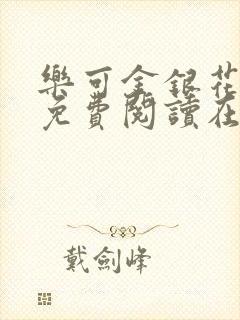 樂可金銀花
免費閱讀在
戴劍峰